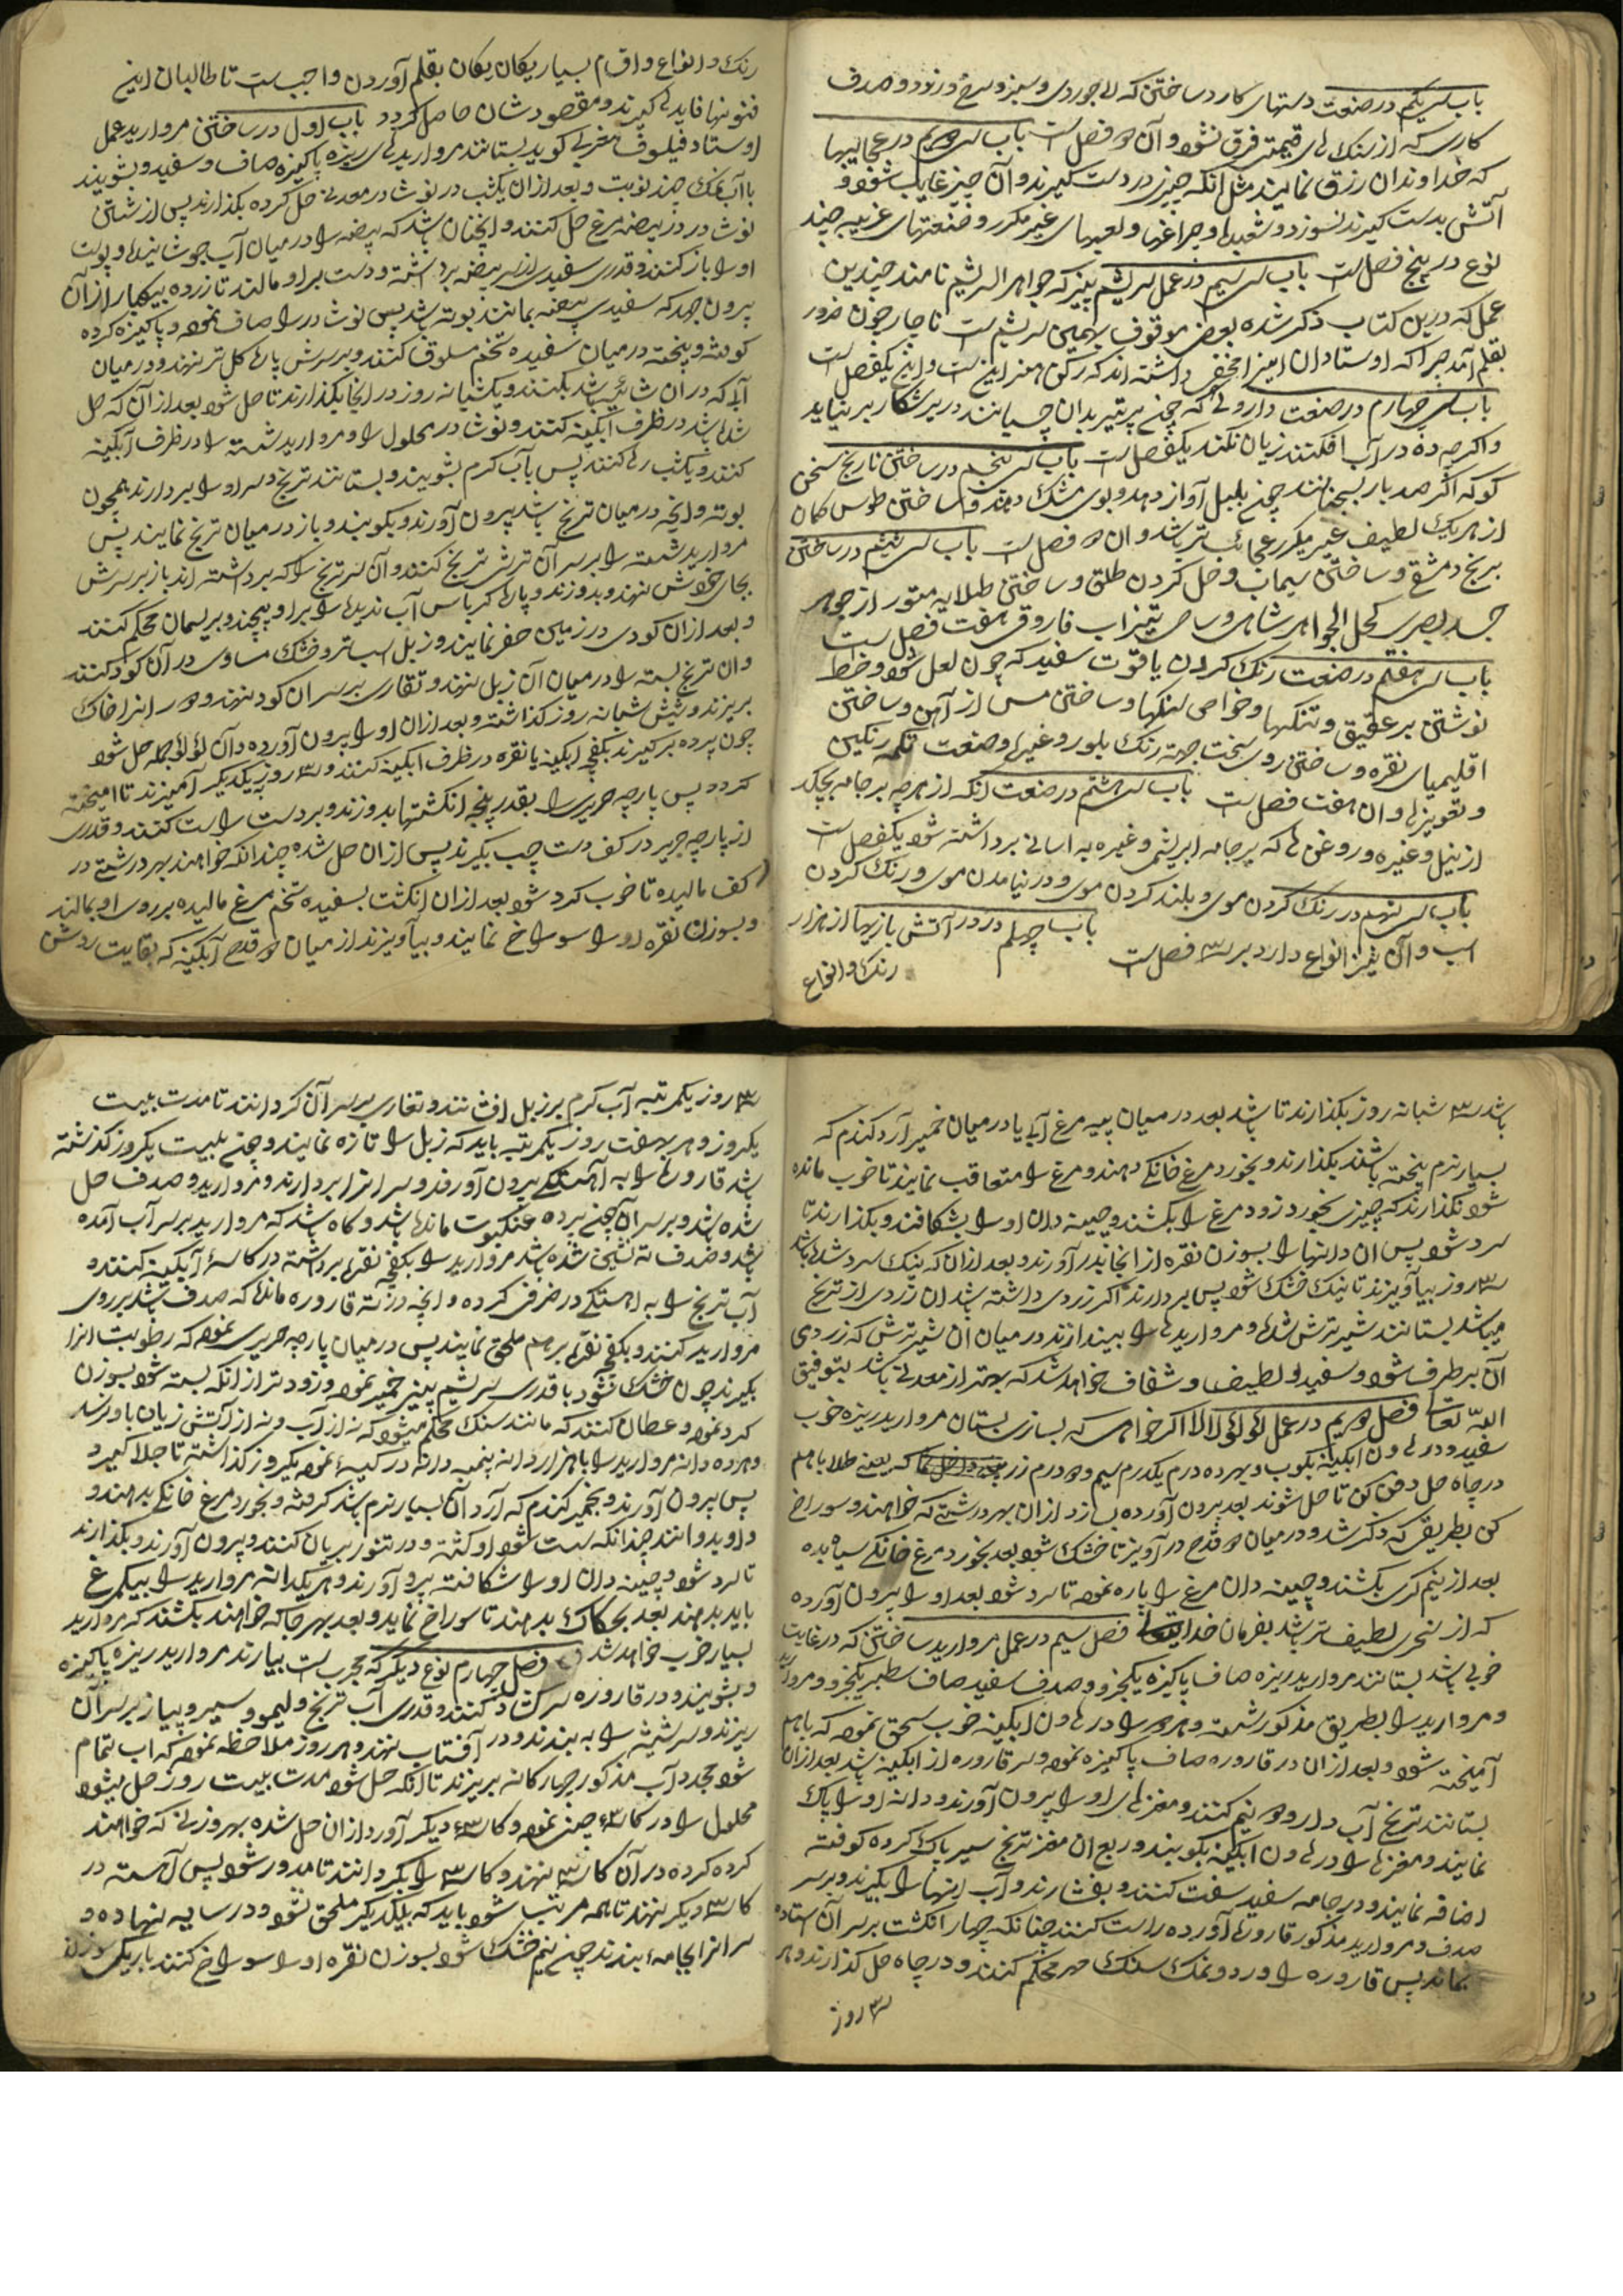 باب سی یکم در صنعت دستهای کارد ساختن که لاجوردی و سبز و سرخ و زرد و صدف
کاری که از سنک های قیمتی فرق نشود و آن دو فصل است باب سی دویم در عجایبها
که خداوندان رزق نمایند مثل انکه چیزی در دست کیرند و آن چیز غایب شود و
آتش بدست کیرند نسوزد و شعبدها و چراغها و لعبهای غیر مکرر و صنعتهای غریبه چند
نوع در پنج فصل است باب سی سیم در عمل سریشم پنیر که جواهر السریشم نامند چندین
عمل که درین کتاب ذکر شده بعضی موقوف بهمین سریشم است ناچار چون ضرور
بقلم آمد چرا که اوستادان این را مخفی داشته اند که رکن هنر این است و این یکفصل است
باب سی چهارم در صنعت داروئی که چون پر تیر بدان چسبانند در پر شکار بر نیاید
و اکر صد ده در آب افکنند زیان نکند یکفصل است باب سی پنجم در ساختن نارنج سخن
کو که اکر صد بار بسنجانند چون بلبل آواز دهد و بوی مشک دمد و ساختن طوس کمان
از هر یک لطیف غیر مکرر عجائب تر باشد و ان دو فصل است باب سی ششم در ساختن
برنج دمشقی و ساختن سیماب و حل کردن طلق و ساختن طلایه منثور از جوهر
جسد بصری کحل الجواهر شاهی و ساختن تیزاب فاروقی هفت فصل است
باب سی هفتم در صنعت رنک کردن یاقوت سفید که چون لعل شود و خط
نوشتن بر عقیق و تنکها و خواص لنکها و ساختن مس از آهن و ساختن
اقلیمیای نقره و ساختن روی سخت جهة رنک بلور و غیرها و صنعت تکمه رنکین
و تعویزها و ان هفت فصل است باب سی هشتم در صنعت آنکه از هرچه بر جامه بچکد
از نیل و غیره و روغن ها که بر جامه ابریشمی و غیره به اسانی برداشته شود یکفصل است
باب سی نهم در رنک کردن موی و بلند کردن موی و در نیامدن موی و رنک کردن
اسب و آن نیز انواع دارد بر سه فصل است باب چهلم در در آتش بازیها از هزار
رنک و انواع
رنک و انواع و اقسام بسیار یکان یکان بقلم آوردن واجب است تا طالبان این
فنونها فایده کیرند و مقصودشان حاصل کردد باب اول در ساختن مروارید عمل
اوستاد فیلسوف مغربی کوید بستانند مرواریدهای ریزه پاکیزه صاف و سفید و بشویند
با آب نمک چند نوبت و بعد از ان یکشب در نوشادر معدنی حل کرده بکذارند پس از شستن
نوشادر در بیضه مرغ حل کنند و اینچنان باشد که بیضه را در میان آب جوشانیدها و پوست
او را باز کنند و قدری سفیدی از سر بیضه برداشته و دست بر او مالند تا زرده بیکبار از آن
بیرون جهد که سفیدی بیضه بمانند بوته باشد پس نوشادر را صاف نموده و پاکیزه کرده
کوفته و پخته در میان سفیده تخم مسلوق کنند و بر سرش پاره کل تر نهند و در میان
آبی که در ان باشد بکنند و یکشبانه روز در انجا بکذارند تا حل شود بعد از آن که حل
شده باشد در ظرف آبکینه کنند و نوشادر محلول را و مروارید شسته را در ظرف آبکینه
کنند و یکشب رها کنند پس بآب کرم بشویند و بستانند ترنج و سر او را بردارند همچون
بوته و انچه در میان ترنج باشد بیرون آورند و بکوبند و باز در میان ترنج نمایند پس
مروارید شسته را بر سر آن ترشی ترنج کنند و آن سر ترنج را که برداشته اند باز بر سرش
بجای خویش نهند و بدوزند و پاره کرباس آب ندیده را بر او پیچند و بریسمان محکم کنند
و بعد از ان کودی در زمین حفر نمایند و زبل اسب تر و خشک مساوی در آن کود کنند
و ان ترنج بسته را در میان آن زبل نهند و تغاری بر سر ان کود نهند و دور انرا خاک
بریزند و شش شبانه روز کذاشته و بعد از ان او را بیرون آورده و آن لؤلؤ بجمله حل شود
چون پرده بر کیرند بکفچه آبکینه یا نقره در ظرف ابکینه کنند و سه روز بیکدیکر آمیزند تا آمیخته
کردد پس پارچه حریر را بقدر پنجه انکشتها بدوزند و بر دست راست کنند و قدری
از پارچه حریر در کف دست چپ بکیرند پس از ان حل شده چندانکه خواهند بهر درشتی در
کف مالیده تا خوب کرد شود بعد از ان انکشت بسفیده تخم مرغ مالیده بر روی او بمالند
و بسوزن نقره او را سوراخ نمایند و بیاویزند از میان دو قدح آبکینه که بغایت روشن
باشد و سه شبانه روز بکذارند تا باشد بعد در میان پیه مرغ آبی یا در میان خمیر آرد کندم که
بسیار نرم پخته باشند بکذارند و بخورد مرغ خانکی دهند و مرغ را متعاقب نمایند تا خوب مانده
شود نکذارند که چیزی بخورد زود مرغ را بکشند و چینه دان او را بشکافند و بکذارند تا
سرد شود پس ان دانها را بسوزن نقره از انجا بدر آورند و بعد از ان که نیک سرد شده باشد
سه روز بیاویزند تا نیک خشک شود پس بردارند اکر زردی داشته باشد ان زردی از ترنج
میباشد بستانند شیر ترش شده و مرواریدها را بیندازند در میان ان شیر ترش که زردی
آن برطرف شود و سفید و لطیف و شفاف خواهد شد که بهتر از معدنی باشد بتوفیق
الله تعالی فصل دویم در عمل لؤلؤ لالا اکر خواهی که بسازی بستان مروارید ریزه خوب
سفید و در هاون ابکینه بکوب و بهر ده درم یکدرم سیم و دو درم زر یعنی طلا باهم
در چاه حل دفن کن تا حل شوند بعد بیرون آورده بسازد از ان بهر درشتی که خواهند و سوراخ
کن بطریقی که ذکر شد و در میان دو قدح در آویز تا خشک شود بعد بخورد مرغ خانکی سیاه بده
بعد از نیم کری بکشند و چینه دان مرغ را پاره نموده تا سرد شود بعد او را بیرون آورده
که از بحری لطیف تر باشد بفرمان خدایتعالی فصل سیم در عمل مروارید ساختن که در غایت
خوبی باشد بستانند مروارید ریزه صاف پاکیزه یکجزو و صدف سفید صاف سطبر یکجزو و مروارید
و مروارید را بطریق مذکور شسته و هردو را در هاون ابکینه خوب سحق نموده که باهم
آمیخته شود و بعد از ان در قاروره صاف پاکیزه نموده و سر قاروره از ابکینه باشد بعد از ان
بستانند ترنج آب دار و دو نیم کنند و مغزهای او را بیرون آورند و دانه او را پاک
نمایند و مغزها را در هاون ابکینه بکوبند و ربع ان مغز ترنج سیر پاک کرده کوفته
اضافه نمایند و در جامه سفید سفت کنند و بفشارند و آب اینها را بکیرند و بر سر
صدف و مروارید مذکور قاروره آورده راست کنند چنانکه چهار انکشت بر سر آن استاده
بماند پس قاروره را ورد و نمک سنک سر محکم کنند و در چاه حل کذارند و هر
سه روز
سه روز یکمرتبه آب کرم بر زبل افشانند و تغاری بر سر آن کردانند تا مدت بیست
یکروز و هر هفت روز یکمرتبه باید که زبل را تازه نمایند و چون بیست یکروز کذشته
باشد قاروره را به آهستکی بیرون آورند و سر انرا بردارند و مروارید و صدف حل
شده باشد و بر سر آن چون پرده عنکبوت مانده باشد و کاه باشد که مروارید بر سر آب آمده
باشد و صدف ته نشین شده باشد مروارید را بکفچه نقره برداشته در کاسهٔ آبکینه کنند و
آب ترنج را به اهستکی در ظرفی کرده و انچه در ته قاروره مانده که صدف باشد بر روی
مروارید کنند و بکفچه نقره بر هم ملحق نمایند پس در میان پارچه حریری نموده که رطوبت انرا
بکیرند چون خشک نشود با قدری سریشم پنیر خمیر نموده و زودتر از انکه بسته شود بسوزن
کرد نموده و غلطان کنند که مانند سنک محکم میشود که نه از آب و نه از آتش زیان باو رسد
و هر ده دانه مروارید را با هزار دانه پنبه دانه در کیسهٔ نموده یکروز کذاشته تا جلا کیرد
پس بیرون آورند و بخمیر کندم که آرد آن بسیار نرم باشد کرفته و بخورد مرغ خانکی بدهند و
و او بدوانند چندانکه سست شود او کشته و در تنور بریان کنند و بیرون آورند و بکذارند
تا سرد شود و چینه دان او را شکافته برو آورند و هر یکدانه مروارید را بیکمرغ
باید بدهند بعد بحکاک بدهند تا سوراخ نماید و بعد بهر جا که خواهند بکشند که مروارید
بسیار خوب خواهد شد فصل چهارم نوع دیکر که مجرب است بیارند مروارید ریزه پاکیزه
و بشویند و در قاروره سر کشاد کنند و قدری آب ترنج و لیمو و سیر و پیاز بر سر آن
ریزند و سر شیشه را به بندند و در آفتاب نهند و هر روز ملاحظه نموده که اب تمام
شود مجدد آب مذکور چهارکانه بریزند تا انکه حل شود مدت بیست روز حل میشود
محلول را در کاسهٔ چینی نموده و کاسهٔ دیکر آورد از ان حل شده بهر وزنی که خواهند
کرده کرده در آن کاسه نهند و کاسه را بکردانند تا مدور شود پس آهسته در
کاسهٔ دیکر نهند تا همه مرتب شود باید که بیکدیکر ملحق نشود و در سایه نهاده و
سر انرا بجامهٔ بندند چون نیم خشک شود بسوزن نقره او را سوراخ کنند باریک